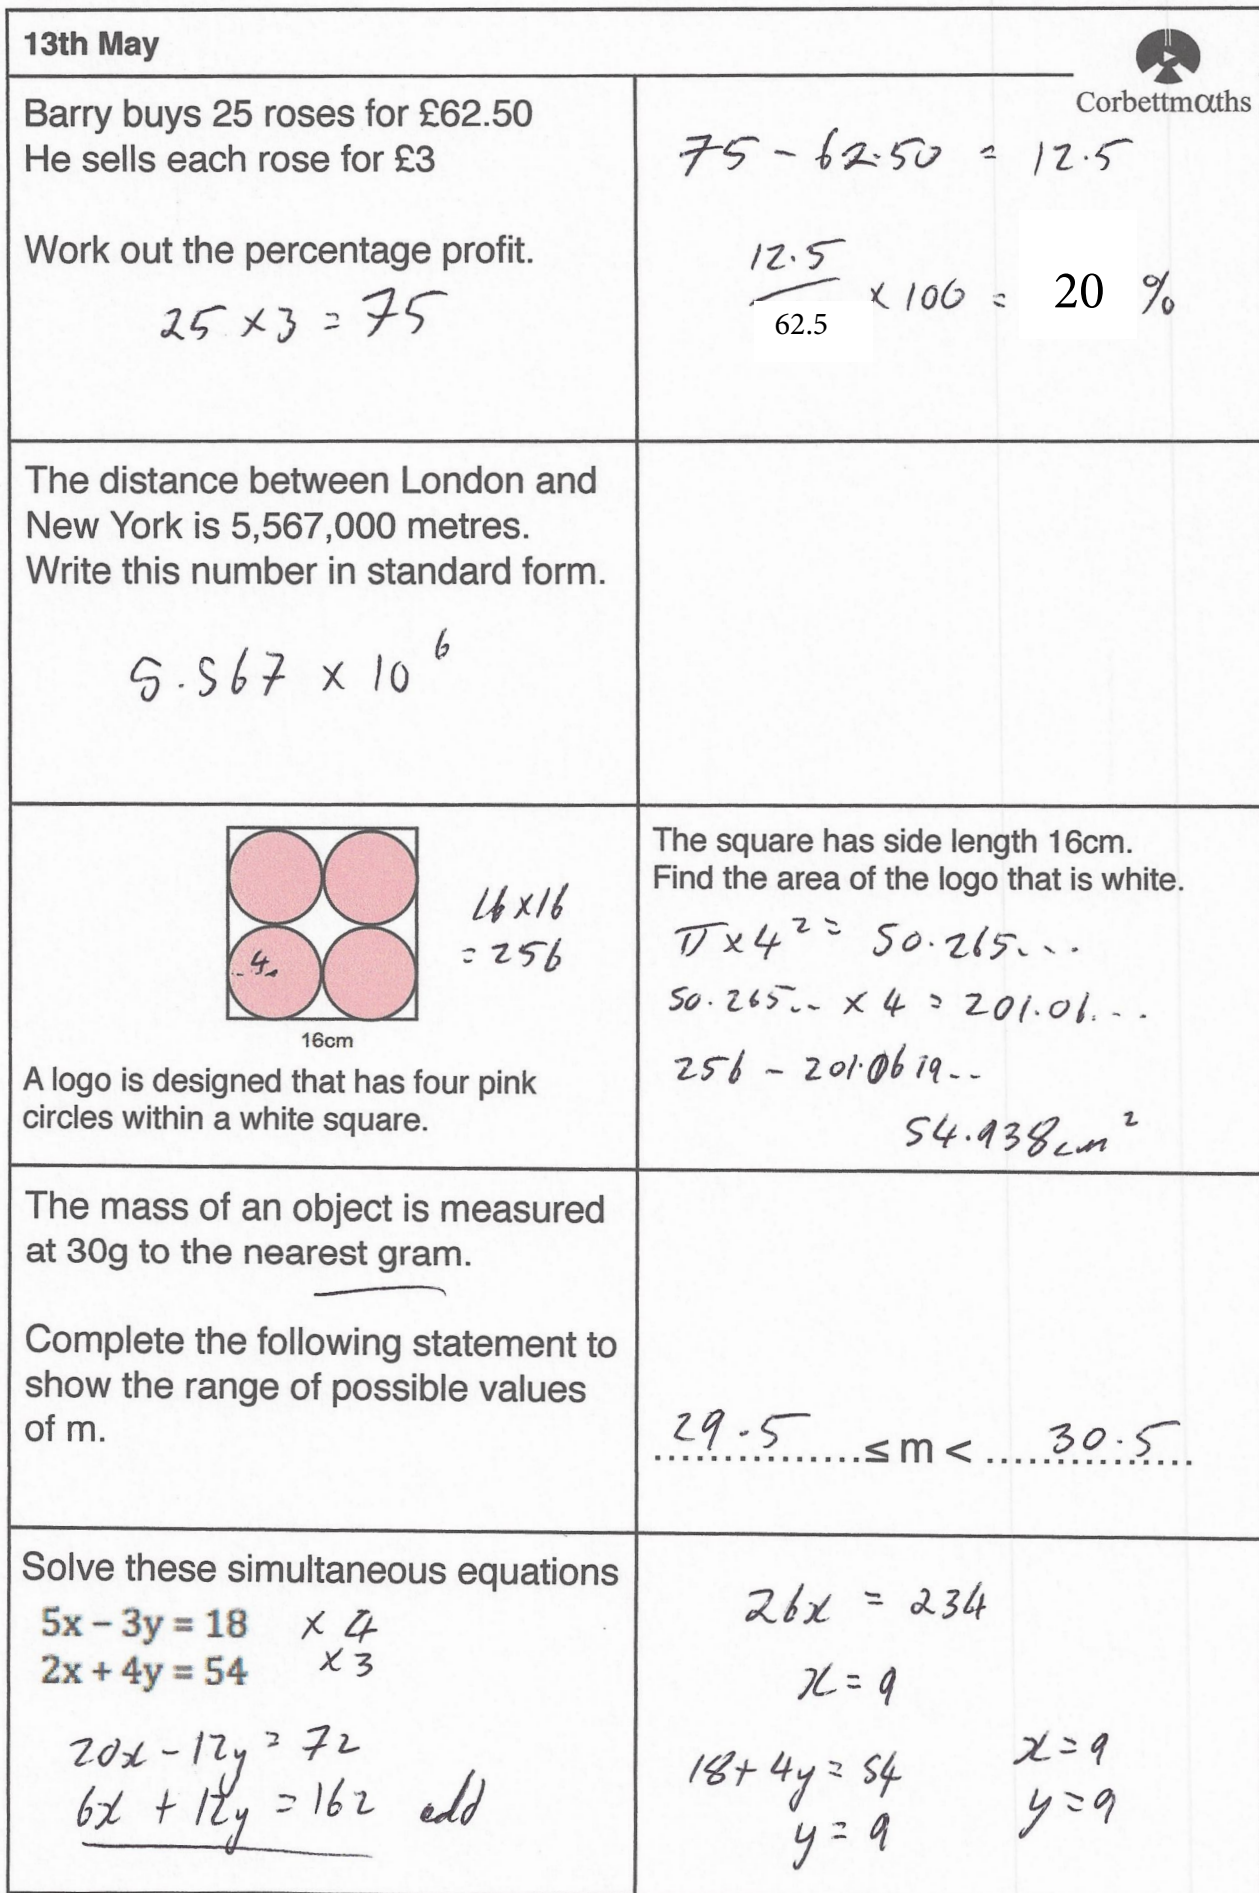 13th May
Corbettmαths
Barry buys 25 roses for £62.50
He sells each rose for £3
Work out the percentage profit.
25 × 3 = 75
75 - 62.50 = 12.5
12.5
62.5
× 100 = 20 %
The distance between London and
New York is 5,567,000 metres.
Write this number in standard form.
5.567 × 10⁶
4
16cm
16 × 16
= 256
A logo is designed that has four pink
circles within a white square.
The square has side length 16cm.
Find the area of the logo that is white.
π × 4² = 50.265...
50.265... × 4 = 201.06...
256 - 201.0619..
54.938cm²
The mass of an object is measured
at 30g to the nearest gram.
Complete the following statement to
show the range of possible values
of m.
29.5 ≤ m < 30.5
Solve these simultaneous equations
5x – 3y = 18 × 4
2x + 4y = 54 × 3
20x - 12y = 72
6x + 12y = 162 add
26x = 234
x = 9
18 + 4y = 54
y = 9
x = 9
y = 9